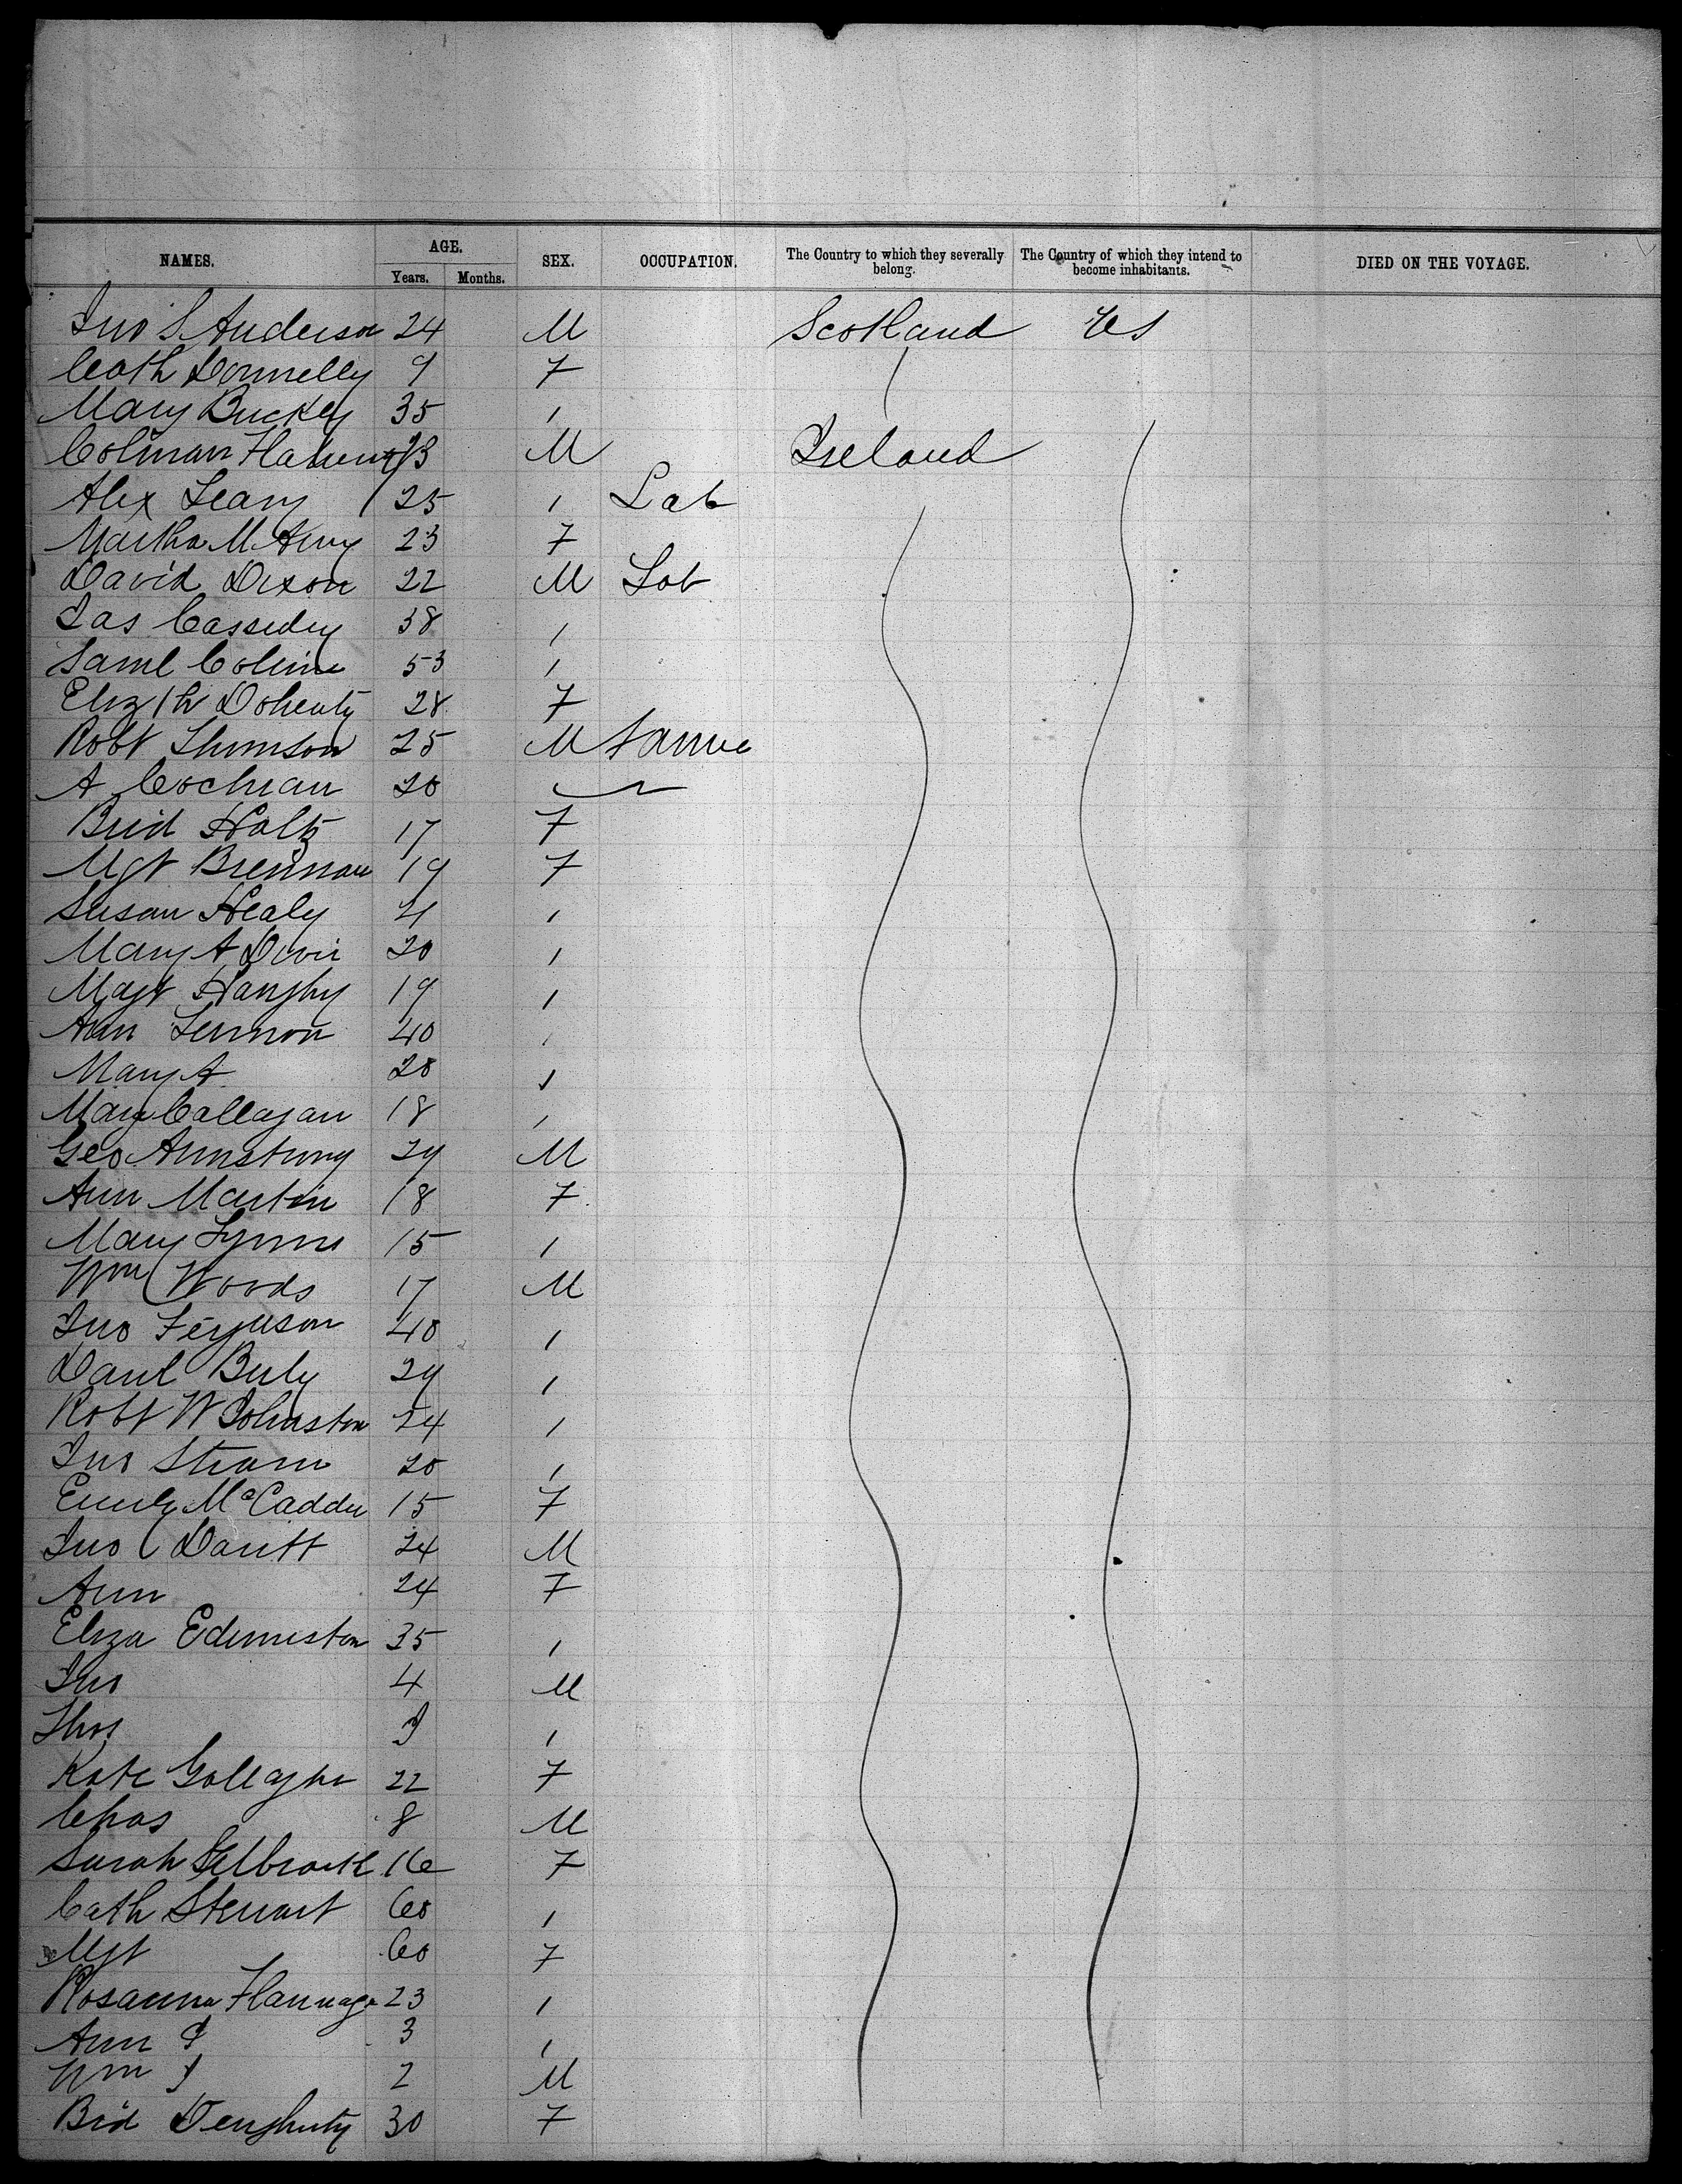 NAMES. AGE. Years. Months. SEX. OCCUPATION. The Country to which they severally belong. The Country of which they intend to become inhabitants. DIED ON THE VOYAGE.
Jno S Anderson 24 M Scotland US
Cath Donnelly 9 F
Mary Buckey 35 "
Colman 23 M Ireland
Alex Leary 25 " Lab
Martha 23 F
David Dixon 22 M Lab
Jas Cassedey 38 "
Saml 53 "
Elizth Doherty 28 F
Robt Thomson 25 M
A Cochran 20
Brid Holtz 17 F
Mgt Brennan 19 F
Susan Healy 4 "
Mary A 20 "
Magt 19 "
Ann Lennon 40 "
Mary A 28 "
Mary Callagan 18 "
Geo Armstrong 24 M
Ann Martin 18 F
Mary Lynns 15 "
Wm Woods 17 M
Jno Ferguson 40 "
Danl 24 "
Robt W Johnston 24 "
Jno 20 "
Emily McCadden 15 F
Jno Davitt 24 M
Ann 24 F
Eliza Edmiston 35 "
Jno 4 M
Thos "
Kate Gallagher 22 F
Chas 8 M
Sarah Gilbraith 16 F
Cath Stewart 60 "
Mgt 60 F
Rosanna Flannaga 23 "
Ann 3 "
Wm 2 M
Bid 30 F